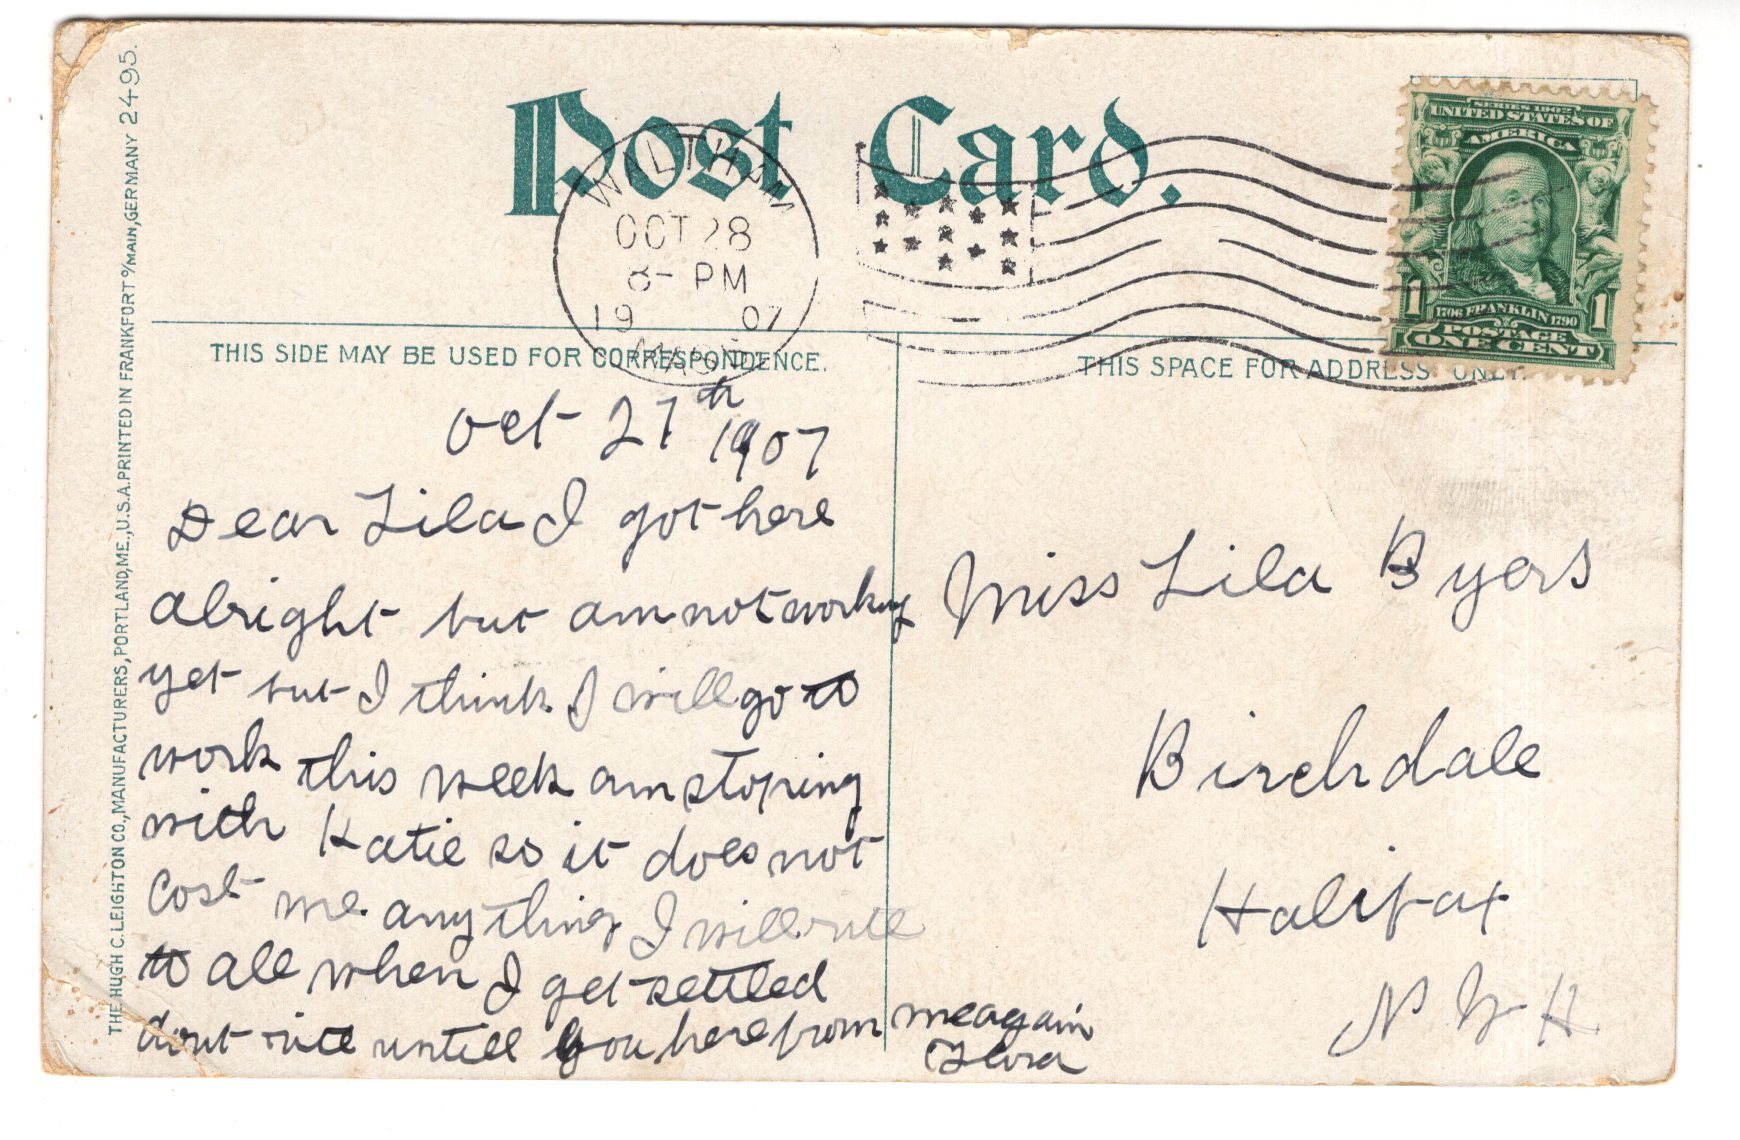 Post Card.
WALTHAM
OCT 28
8- PM
1907
MASS.
SERIES 1902
UNITED STATES OF
AMERICA
1706 FRANKLIN 1790
POSTAGE
1 ONE CENT 1
THIS SIDE MAY BE USED FOR CORRESPONDENCE.
THIS SPACE FOR ADDRESS ONLY.
THE HUGH C. LEIGHTON CO., MANUFACTURERS, PORTLAND, ME., U.S.A. PRINTED IN FRANKFORT o/MAIN, GERMANY 2495.
Oct 27th 1907
Dear Lila I got here
alright but am not working
yet but I think I will go to
work this week am stoping
with Katie so it does not
cost me anything I will rite
to all when I get settled
dont rite untill you here from me again
Flora
Miss Lila Byers
Birchdale
Halifax
N Y H